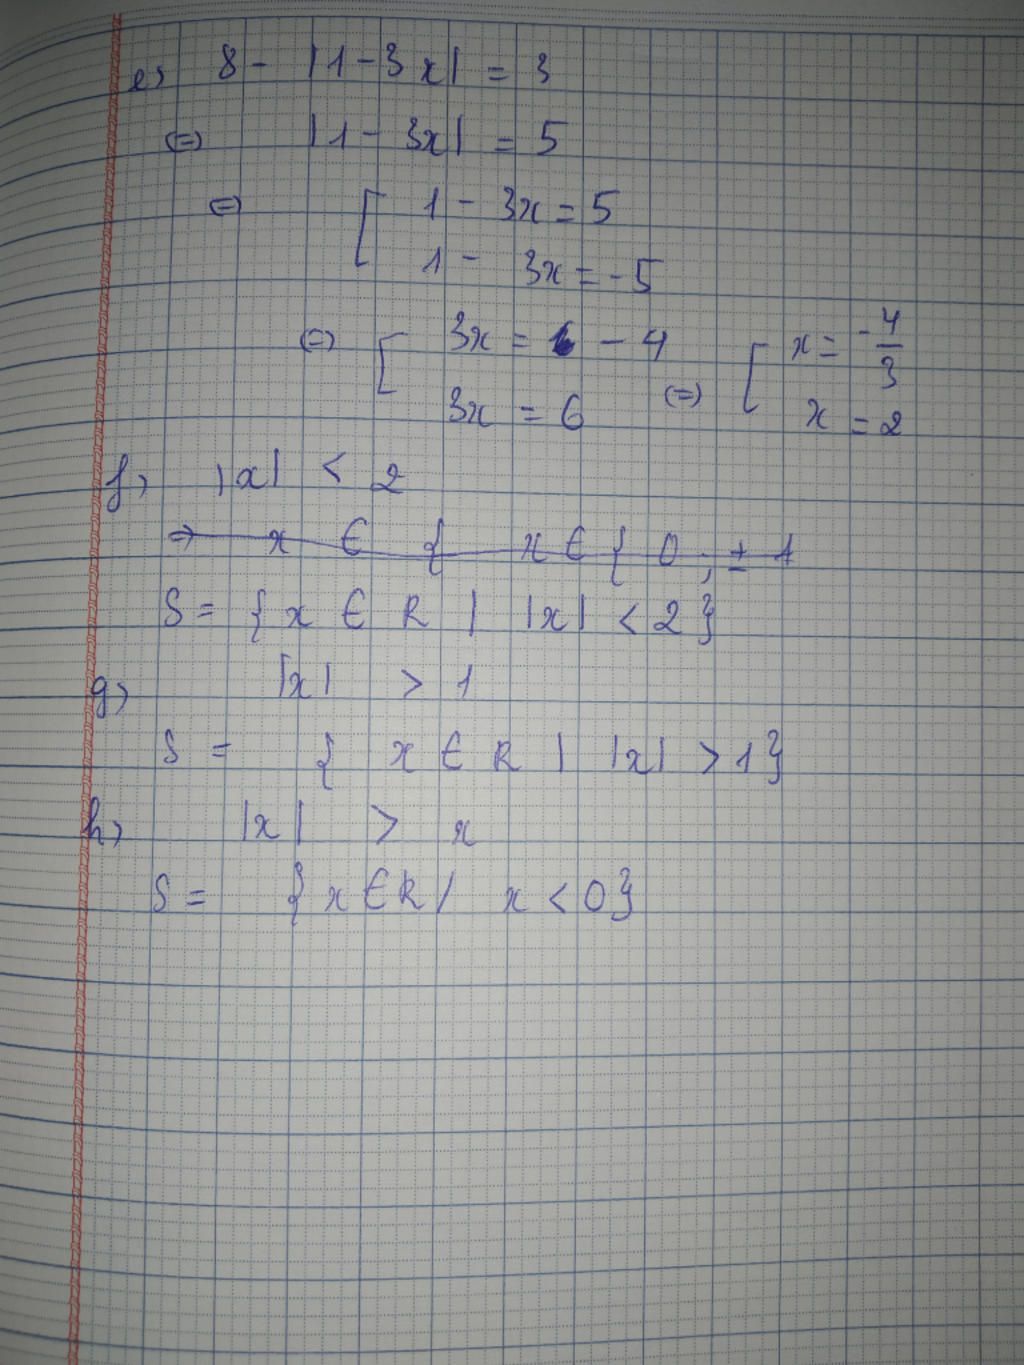 e, 8 - |1 - 3x| = 3
(=) |1 - 3x| = 5
(=) [ 1 - 3x = 5
1 - 3x = -5
(=) [ 3x = - 4 (=) [ x = -4/3
3x = 6 x = 2
f, |x| < 2
=> x ∈ { x ∈ { 0 ; ± 1
S = { x ∈ R | |x| < 2 }
g, |x| > 1
S = { x ∈ R | |x| > 1 }
h, |x| > x
S = { x ∈ R / x < 0 }